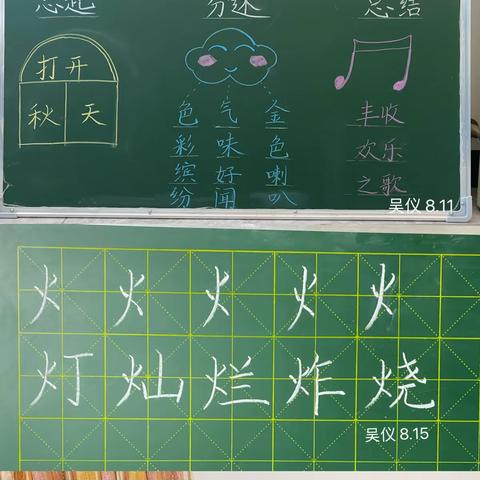 总起 分述 总结
打开
秋天
色彩缤纷
气味好闻
金色喇叭
丰收
欢乐
之歌
吴仪 8.11
火 火 火 火 火
灯 灿 烂 炸 烧
吴仪 8.15